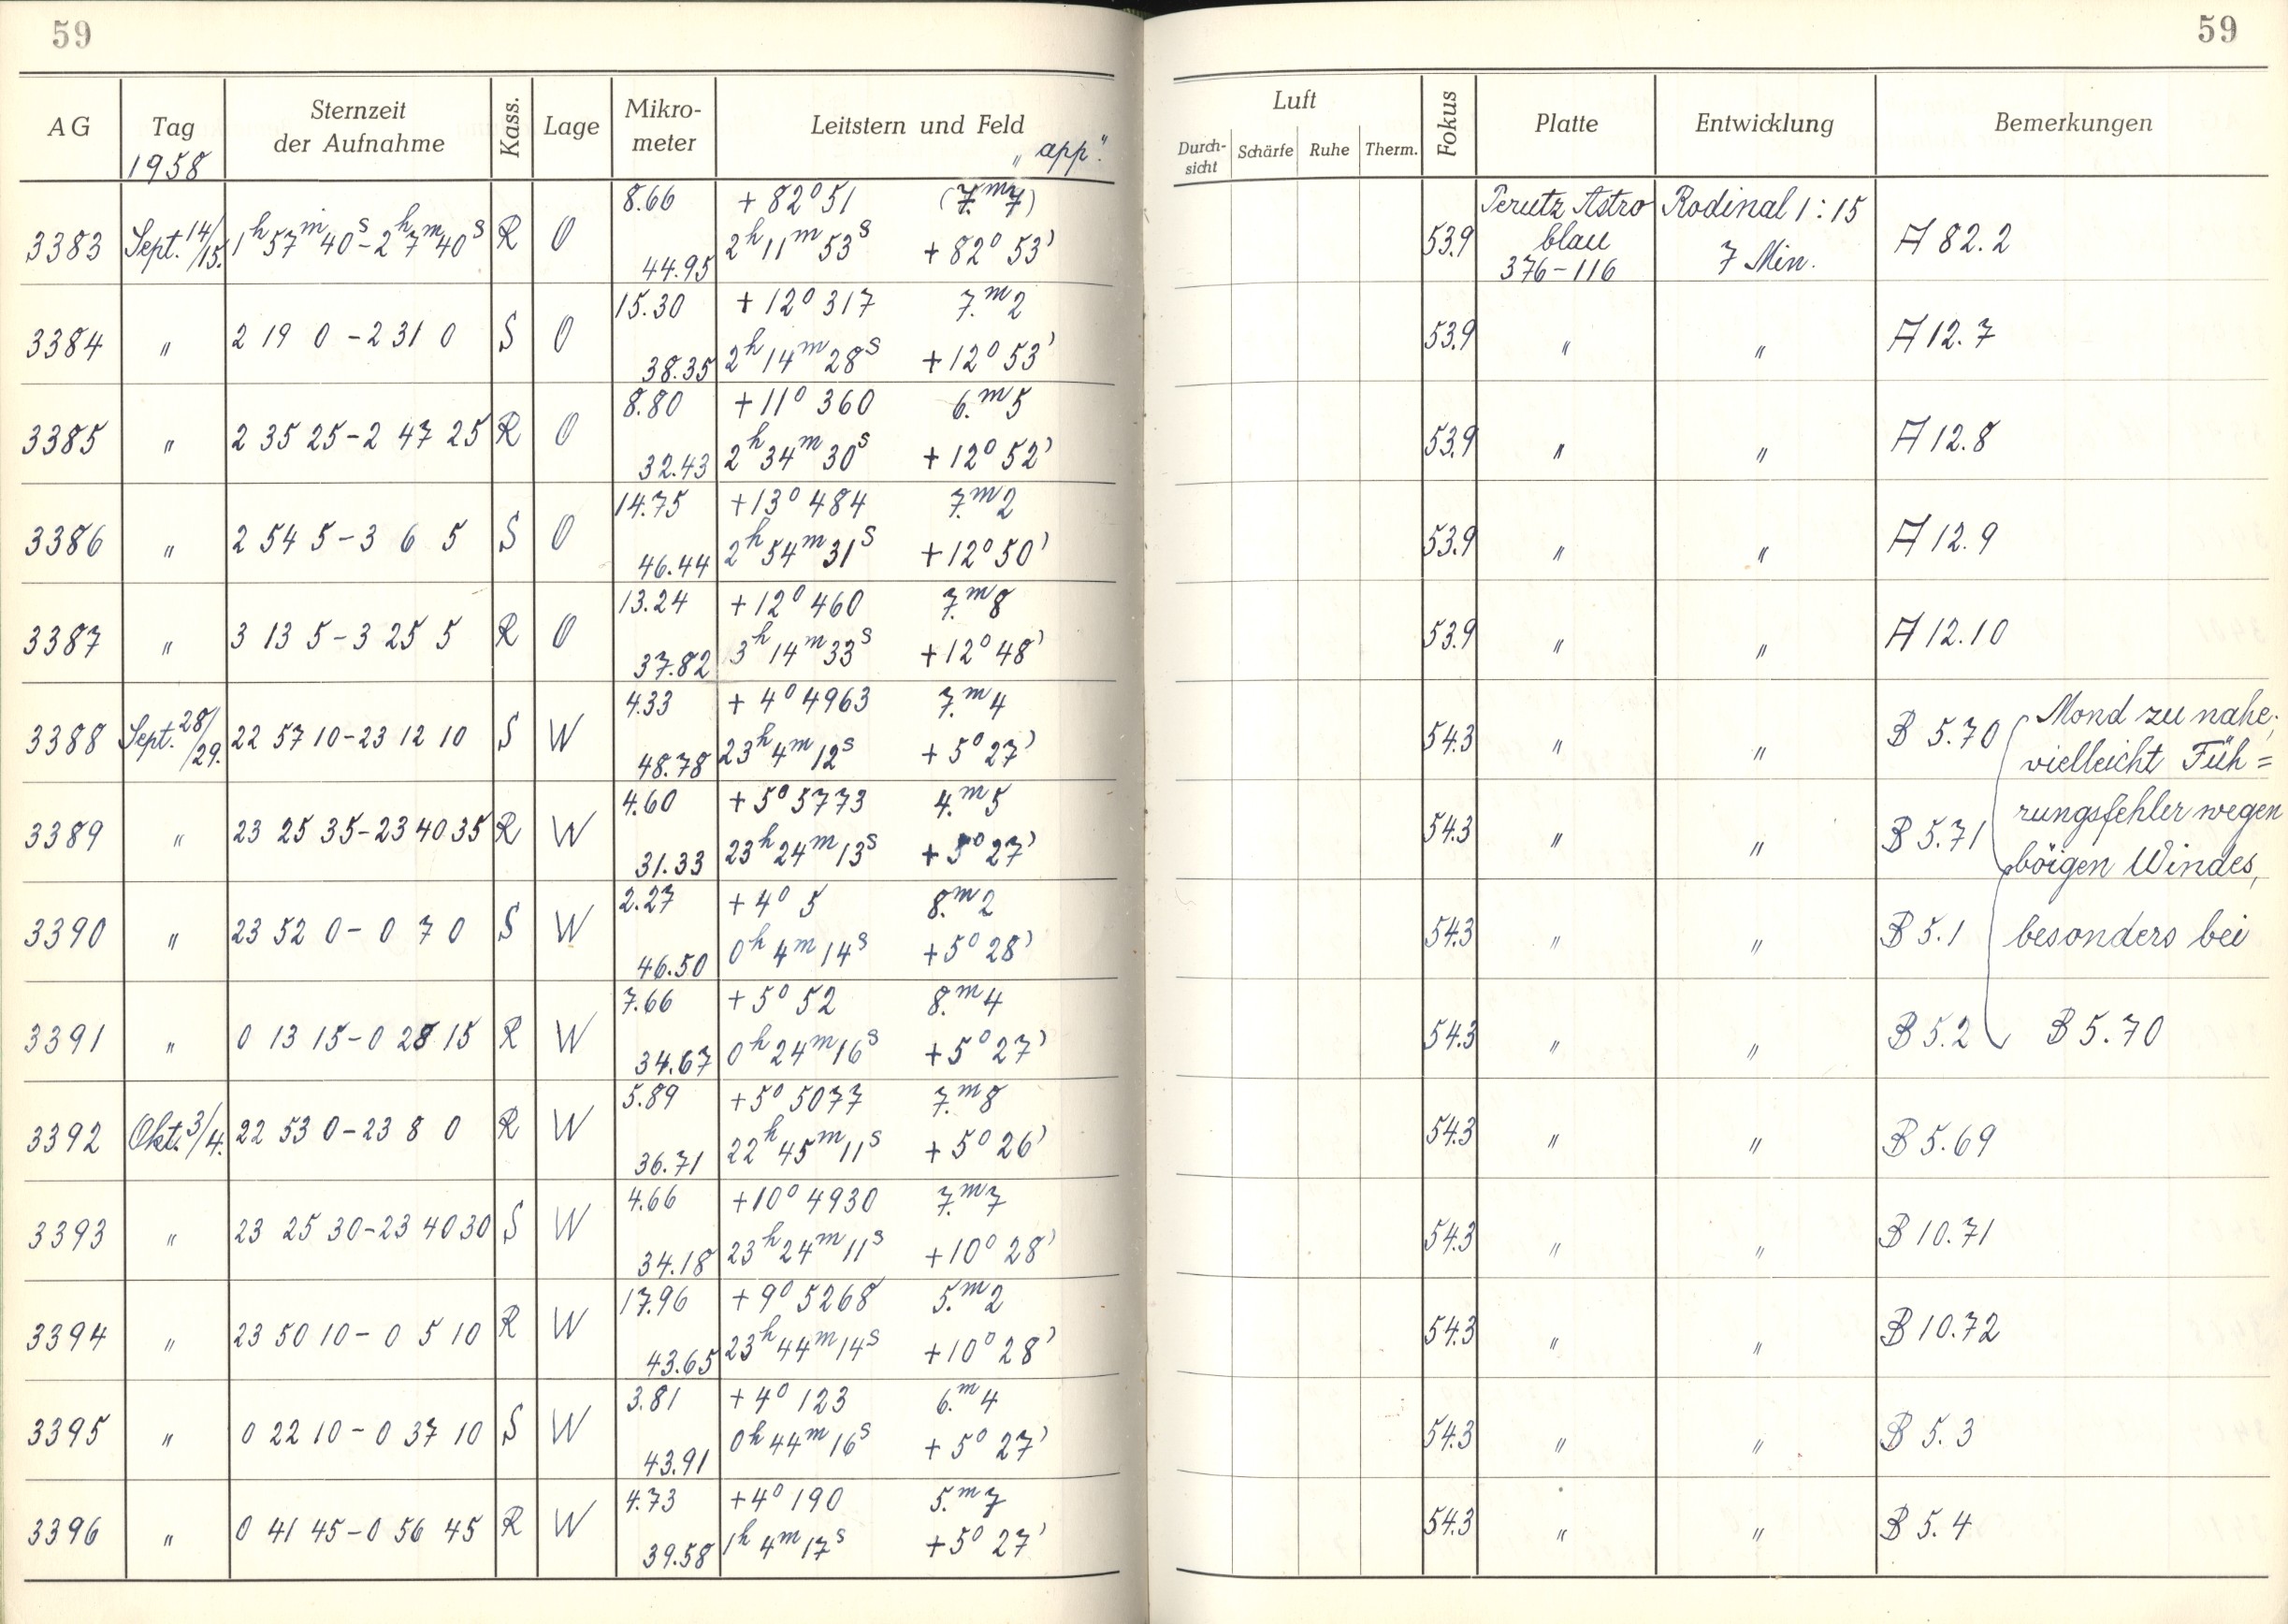 59
59
AG Tag Sternzeit der Aufnahme Kass. Lage Mikro-meter Leitstern und Feld Luft Durch-sicht Schärfe Ruhe Therm. Fokus Platte Entwicklung Bemerkungen
1958 „app."
8.66 +82° 51 (7.ᵐ7) Perutz Astro Rodinal 1:15
3383 Sept. 14/15. 1ʰ57ᵐ40ˢ-2ʰ7ᵐ40ˢ R O 44.95 2ʰ11ᵐ53ˢ +82° 53' 53.9 blau 376-116 7 Min. A 82.2
15.30 +12° 317 7.ᵐ2
3384 " 2 19 0 - 2 31 0 S O 38.35 2ʰ14ᵐ28ˢ +12° 53' 53.9 " " A 12.7
8.80 +11° 360 6.ᵐ5
3385 " 2 35 25 - 2 47 25 R O 32.43 2ʰ34ᵐ30ˢ +12° 52' 53.9 " " A 12.8
14.75 +13° 484 7.ᵐ2
3386 " 2 54 5 - 3 6 5 S O 46.44 2ʰ54ᵐ31ˢ +12° 50' 53.9 " " A 12.9
13.24 +12° 460 7.ᵐ8
3387 " 3 13 5 - 3 25 5 R O 37.82 3ʰ14ᵐ33ˢ +12° 48' 53.9 " " A 12.10
4.33 +4° 4963 7.ᵐ4 Mond zu nahe;
3388 Sept. 28/29. 22 57 10 - 23 12 10 S W 48.78 23ʰ4ᵐ12ˢ +5° 27' 54.3 " " B 5.70 vielleicht Füh=
4.60 +5° 5773 4.ᵐ5 rungsfehler wegen
3389 " 23 25 35 - 23 40 35 R W 31.33 23ʰ24ᵐ13ˢ +5° 27' 54.3 " " B 5.71 böigen Windes,
2.27 +4° 5 8.ᵐ2
3390 " 23 52 0 - 0 7 0 S W 46.50 0ʰ4ᵐ14ˢ +5° 28' 54.3 " " B 5.1 besonders bei
7.66 +5° 52 8.ᵐ4
3391 " 0 13 15 - 0 28 15 R W 34.67 0ʰ24ᵐ16ˢ +5° 27' 54.3 " " B 5.2 B 5.70
5.89 +5° 5077 7.ᵐ8
3392 Okt. 3/4. 22 53 0 - 23 8 0 R W 36.71 22ʰ45ᵐ11ˢ +5° 26' 54.3 " " B 5.69
4.66 +10° 4930 7.ᵐ7
3393 " 23 25 30 - 23 40 30 S W 34.18 23ʰ24ᵐ11ˢ +10° 28' 54.3 " " B 10.71
17.96 +9° 5268 5.ᵐ2
3394 " 23 50 10 - 0 5 10 R W 43.65 23ʰ44ᵐ14ˢ +10° 28' 54.3 " " B 10.72
3.81 +4° 123 6.ᵐ4
3395 " 0 22 10 - 0 37 10 S W 43.91 0ʰ44ᵐ16ˢ +5° 27' 54.3 " " B 5.3
4.73 +4° 190 5.ᵐ7
3396 " 0 41 45 - 0 56 45 R W 39.58 1ʰ4ᵐ17ˢ +5° 27' 54.3 " " B 5.4